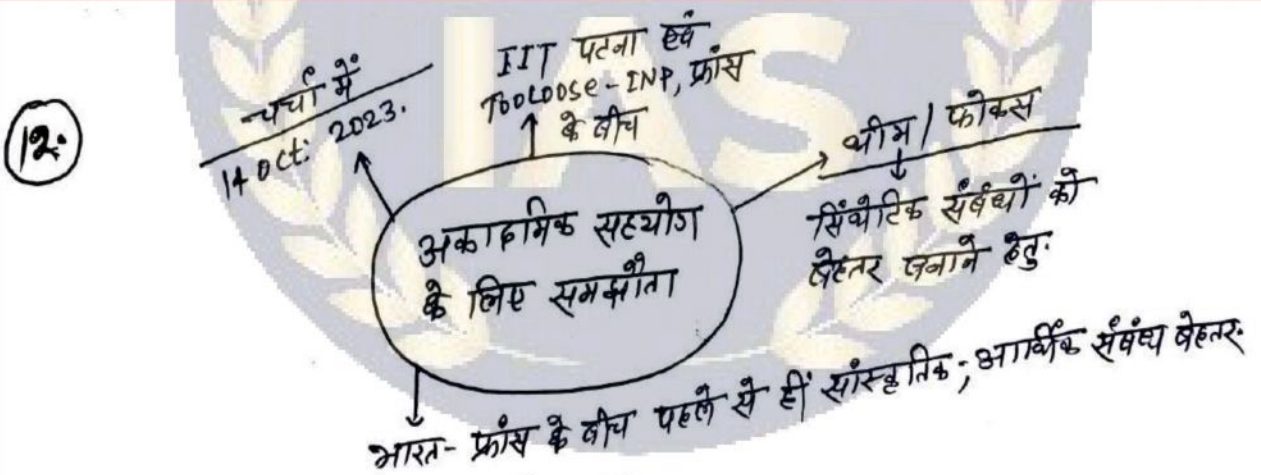 IAS
12.
चर्चा में
14 Oct. 2023.
IIT पटना एवं
TOOLOOSE-INP, फ्रांस
के बीच
थीम / फोकस
सिंथेटिक संबंधों को
बेहतर बनाने हेतु.
अकादमिक सहयोग
के लिए समझौता
भारत- फ्रांस के बीच पहले से हीं सांस्कृतिक; आर्थिक संबंध बेहतर.